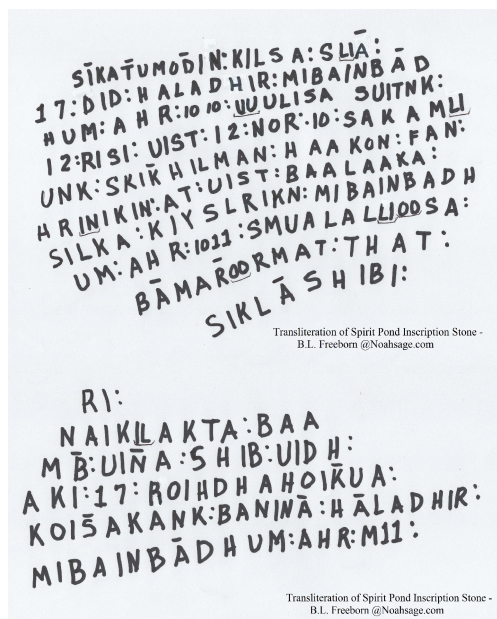 SĪKAT̄UMOD̄IN:KILSA:SLIĀ:
17:DID:HALADHIR:MIBAINBĀD
HUM:AHR:1010:UUULISA SUITNK:
12:RISI:UIST:12:NOR:10:SAKAMLI
UNK:SKIK̄HILMAN:HAAKON:FAN:
HRINIKIN:AT:UIST:BAALAAKA:
SILKA:KIYSLRIKN:MIBAINBADH
UM:AHR:1011:SMUALALLIOOSA:
BĀMAR̄OORMAT:THAT:
SIKLĀSHIBI:
Transliteration of Spirit Pond Inscription Stone -
B.L. Freeborn @Noahsage.com
RI:
NAIKILAKTA:BAA
MB̄:UIN̄A:SHIB:UIDH:
AKI:17:ROIHDHAHOIK̄UA:
KOIS̄AKANK:BANINĀ:HĀLADHIR:
MIBAINBĀDHUM:AHR:M11:
Transliteration of Spirit Pond Inscription Stone -
B.L. Freeborn @Noahsage.com